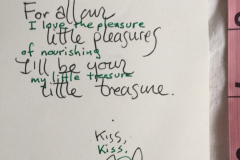 For all our
I love the pleasure
little pleasures
of nourishing
I'll be your
my little treasure
little treasure.
Kiss,
Kiss,